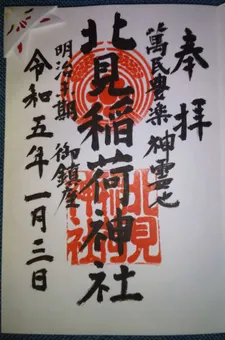 奉拝
萬民豊楽神霊也
北見稲荷神社
明治初期 御鎮座
令和五年一月三日
北見
神社